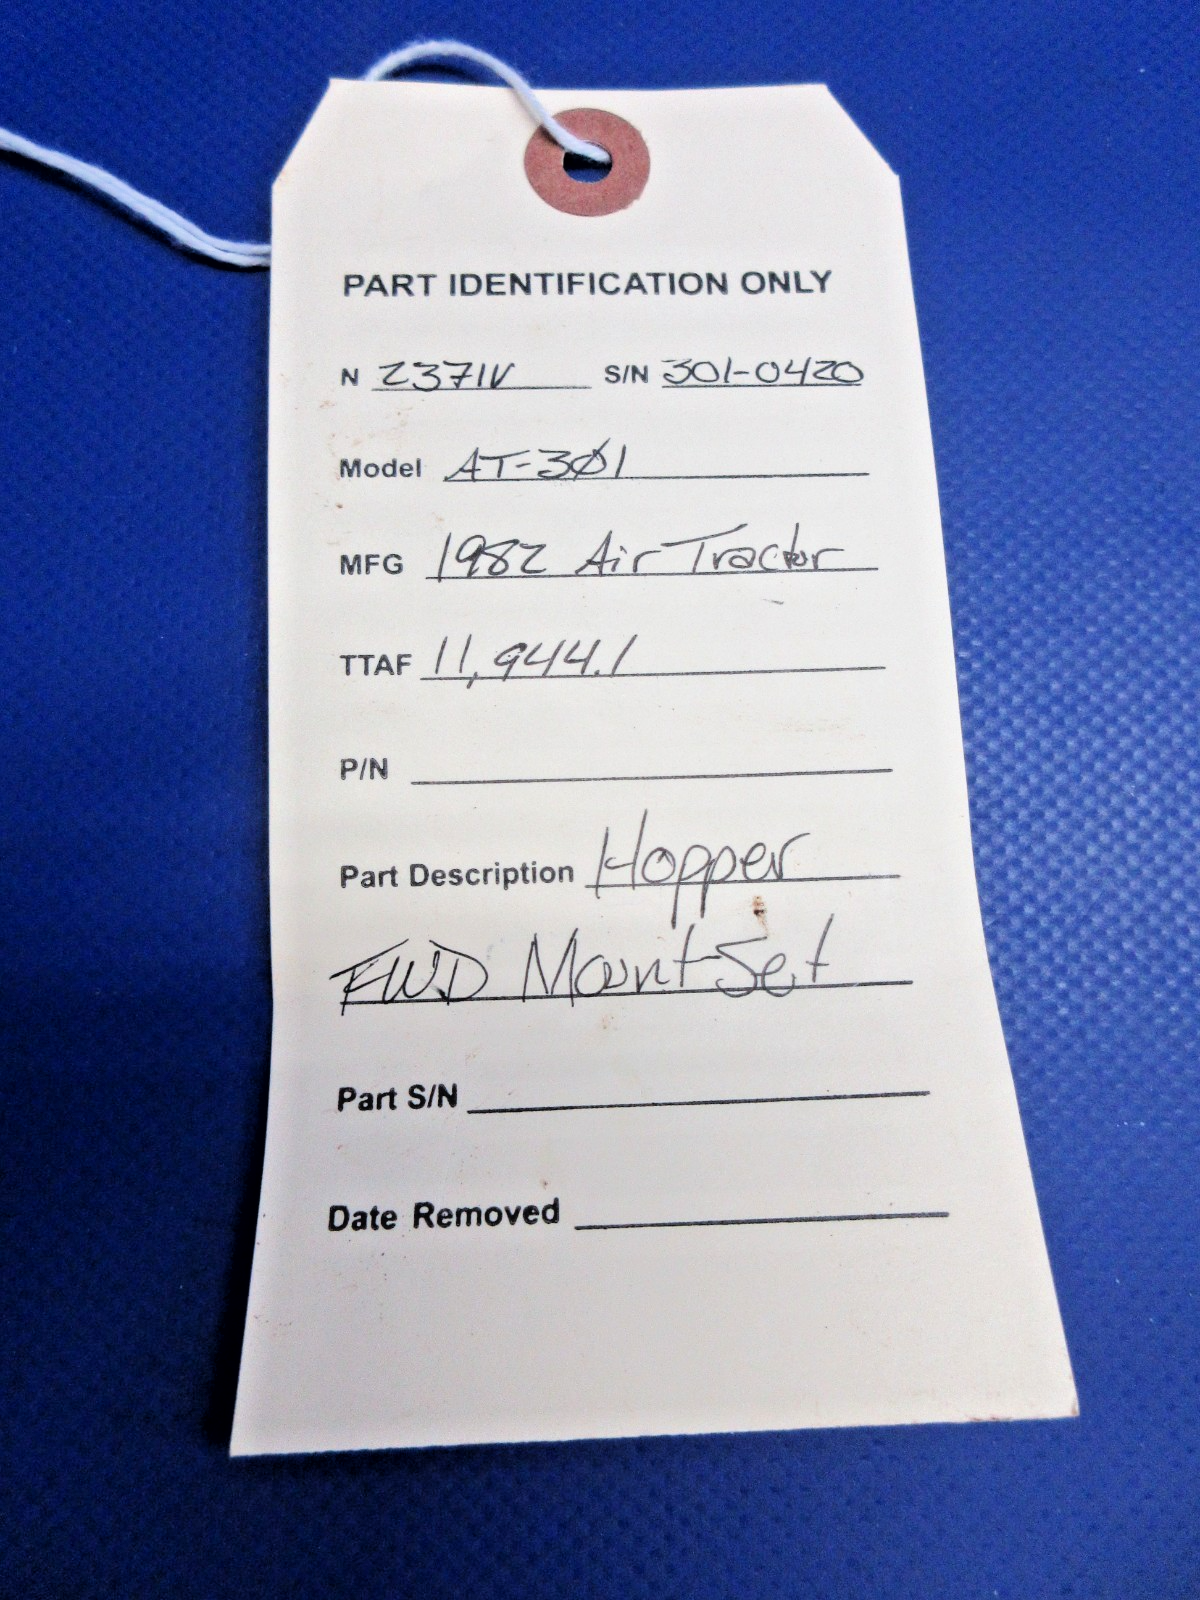 PART IDENTIFICATION ONLY
N 2371V S/N 301-0420
Model AT-301
MFG 1982 Air Tractor
TTAF 11,944.1
P/N
Part Description Hopper
FWD Mount Set
Part S/N
Date Removed